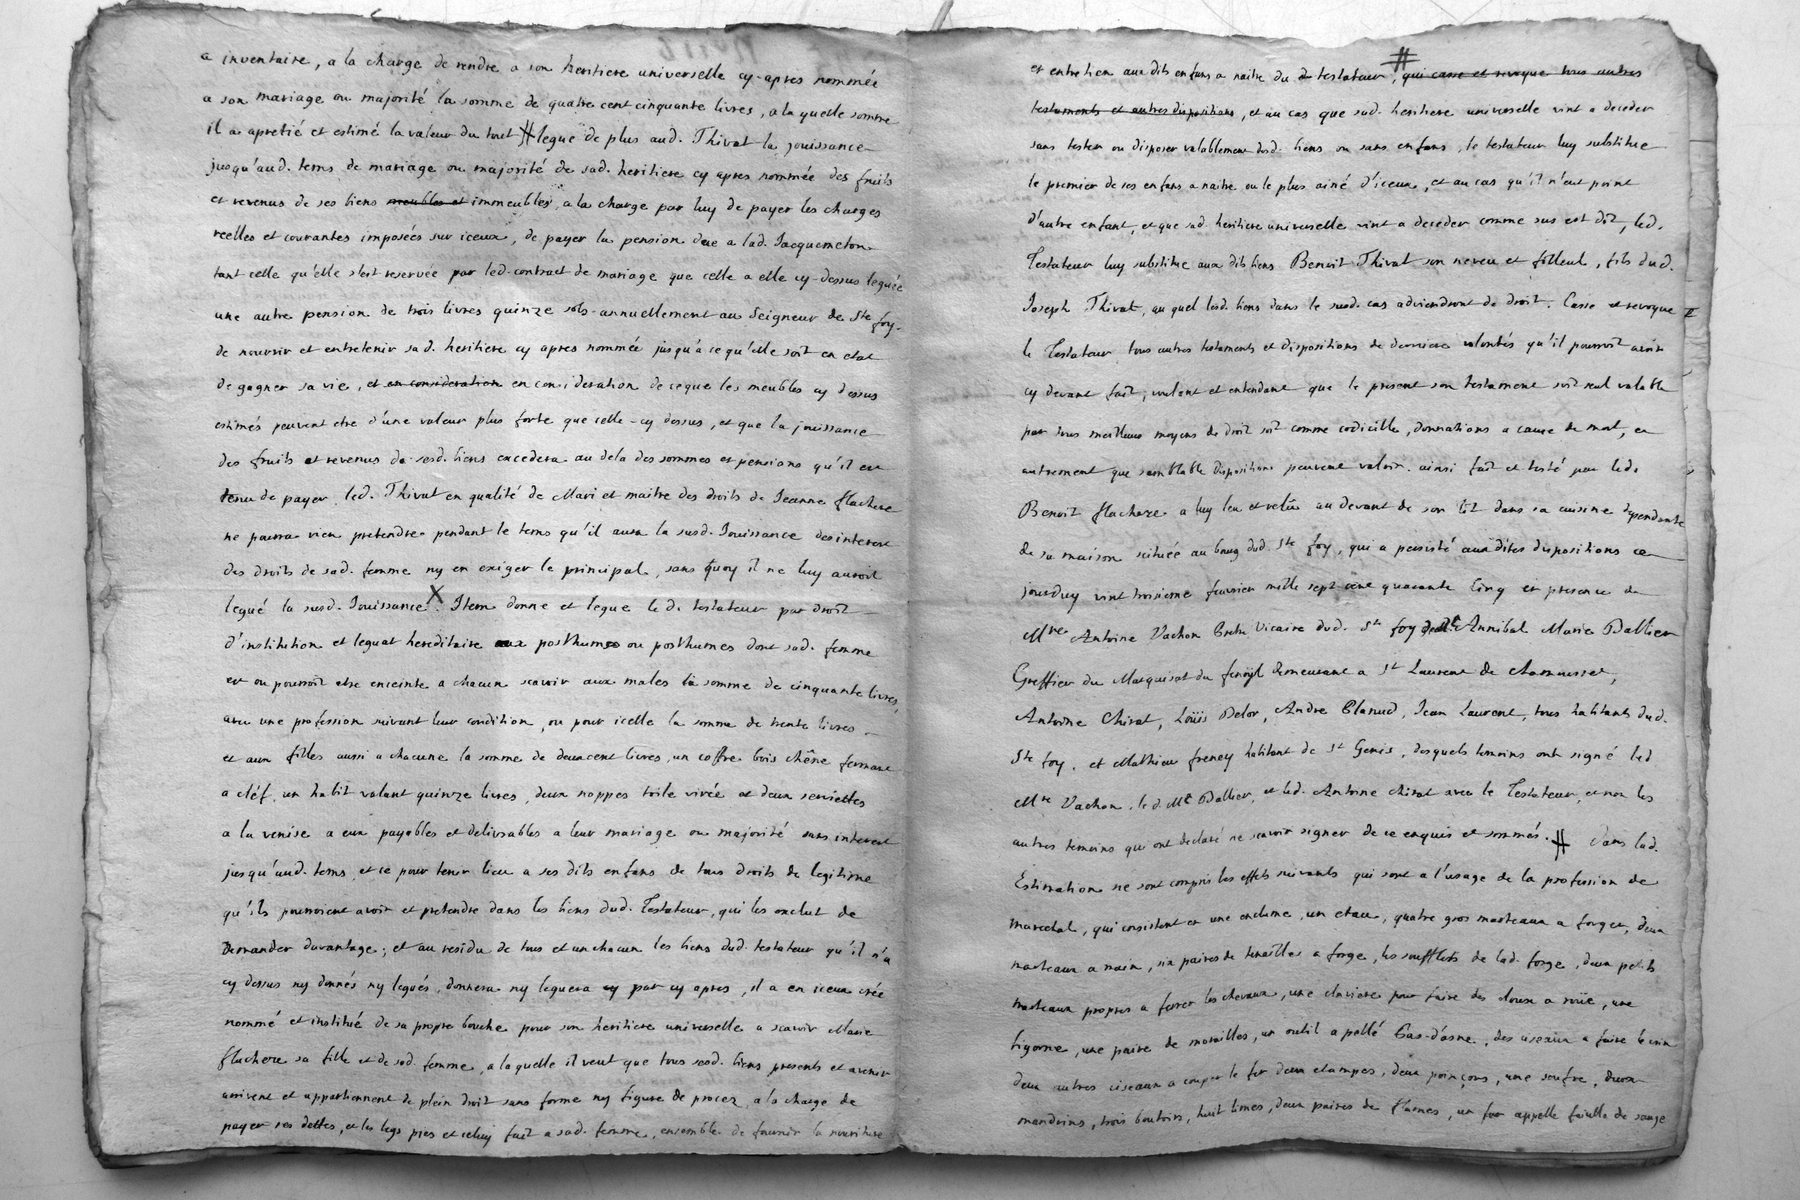 a inventaire, a la charge de rendre a son heritiere universelle cy-apres nommée
a son mariage ou majorité la somme de quatre cent cinquante livres, a la quelle somme
il a apretié et estimé la valeur du tout # legue de plus aud. Thivat la jouissance
jusqu'aud. tems de mariage ou majorité de sad. heritiere cy apres nommée des fruits
et revenus de ses biens meubles et immeubles, a la charge par luy de payer les charges
reelles et courantes imposées sur iceux, de payer la pension deue a lad. Jacquemeton
tant celle qu'elle s'est reservée par led. contract de mariage que celle a elle cy-dessus leguée
une autre pension de trois livres quinze sols annuellement au Seigneur de Ste foy
de nourrir et entretenir sad. heritiere cy apres nommée jusqu'a ce qu'elle soit en etat
de gagner sa vie, et en consideration en consideration de ce que les meubles cy dessus
estimés peuvent etre d'une valeur plus forte que celle-cy dessus, et que la jouissance
des fruits et revenus de sesd. biens excedera au dela des sommes et pensions qu'il est
tenu de payer, led. Thivat en qualité de Mari et maitre des droits de Jeanne flachere
ne pourra rien pretendre pendant le tems qu'il aura la susd. Jouissance des interest
des droits de sad. femme ny en exiger le principal, sans quoy il ne luy auroit
legué la susd. Jouissance. X Item donne et legue led. testateur par droit
d'institution et leguat hereditaire aux posthume ou posthumes dont sad. femme
est ou pourroit etre enceinte a chacun scavoir aux males la somme de cinquante livres,
avec une profession suivant leur condition, ou pour icelle la somme de trente livres
et aux filles aussi a chacune la somme de deux cent livres, un coffre bois chêne fermant
a cléf, un habit valant quinze livres, deux nappes toile virée et deux serviettes
a la venise a eux payables et delivrables a leur mariage ou majorité sans interest
jusqu'aud. tems, et ce pour tenir lieu a ses dits enfans de tous droits de legitime
qu'ils pourroient avoir et pretendre dans les biens dud. Testateur, qui les exclut de
demander davantage; et au residu de tous et un chacun les biens dud. testateur qu'il n'a
cy dessus ny donnés ny legués, donnera ny leguera cy par cy apres, il a en iceux créé
nommé et institué de sa propre bouche pour son heritiere universelle a scavoir Marie
flachere sa fille et de sad. femme, a laquelle il veut que tous sesd. biens presents et avenir
arrivent et appartiennent de plein droit sans forme ny figure de procez, a la charge de
payer ses dettes, et les legs pies et celuy fait a sad. femme, ensemble de fournir la nourriture
et entretien aux dits enfans a naitre du d testateur, # qui casse et revoque tous autres
testaments et autres dispositions, et au cas que sad. heritiere universelle vint a deceder
sans tester ou disposer valablement desd. biens ou sans enfans, le testateur luy substitue
le premier de ses enfans a naitre ou le plus ainé d'iceux, et au cas qu'il n'eut point
d'autre enfant, et que sad. heritiere universelle vint a deceder comme sus est dit, led.
Testateur luy substitue aux dits biens Benoit Thivat son neveu et filleul, fils dud.
Joseph Thivat, au quel lesd. biens dans le susd. cas adviendront de droit. Casse et revoque
le Testateur tous autres testaments et dispositions de derniere volontés qu'il pourroit avoir
cy devant fait, voulant et entendant que le present son testament soit seul valable
par tous meilleurs moyens de droit soit comme codicille, donnations a cause de mort, et
autrement que semblable dispositions peuvent valoir. ainsi fait et testé par led.
Benoit flachere a luy leu et releu au devant de son lit dans sa cuisine dependante
de sa maison scituée au bourg dud. Ste foy, qui a persisté aux dites dispositions ce
jourduy vint troisieme fevrier mille sept cent quarante cinq en presence de
Mre Antoine Vachon Pretre Vicaire dud. Ste foy de Me Annibal Marie Ballier
Greffier du Marquisat du fenoyl demeurant a St Laurent de chamousset,
Antoine Chirat, Loüis Delor, Andre Blanud, Jean Laurent, tous habitants dud.
Ste foy. et Mathieu freney habitant de St Genis, desquels temoins ont signé led
Mre Vachon, led. Me Ballier, et led. Antoine Chirat avec le Testateur, et non les
autres temoins qui ont declaré ne scavoir signer de ce enquis et sommés. # Dans lad.
Estimation ne sont compris les effets suivants qui sont a l'usage de la profession de
marechal, qui consistent en une enclume, un etau, quatre gros marteaux a forger, deux
marteaux a main, six paires de tenailles a forge, les soufflets de lad. forge, deux petits
marteaux propres a ferrer les chevaux, une claviere pour faire des cloux a roüe, une
bigorne, une paire de morailles, un outil apellé Cas-d'asne, des ciseaux a faire le crin
deux autres ciseaux a couper le fer deux etampes, deux poinçons, une soufre, deux
mandrins, trois boutoirs, huit limes, deux paires de flames, un fer appelle feuille de sauge